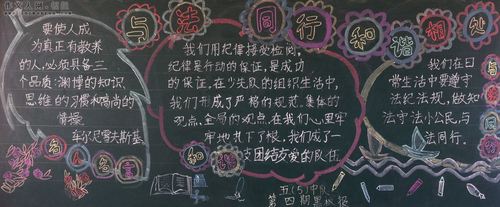 作文人网·氧陶
与法同行和谐相处
要使人成
为真正有教养
的人，必须具备三
个品质：渊博的知识、
思维的习惯和高尚的
情操。
车尔尼雪夫斯基
名人名言
我们用纪律接受检阅。
纪律是行动的保证，是成功
的保证，在少先队的组织生活中，
我们形成了严格的规范。集体的
观点、全局的观点，在我们心里牢
牢地扎下了根，我们成了一
支团结友爱的队伍。
我们在日
常生活中要遵守
法纪法规，做知
法守法小公民，与
法同行。
五（5）中队
第四期黑板报